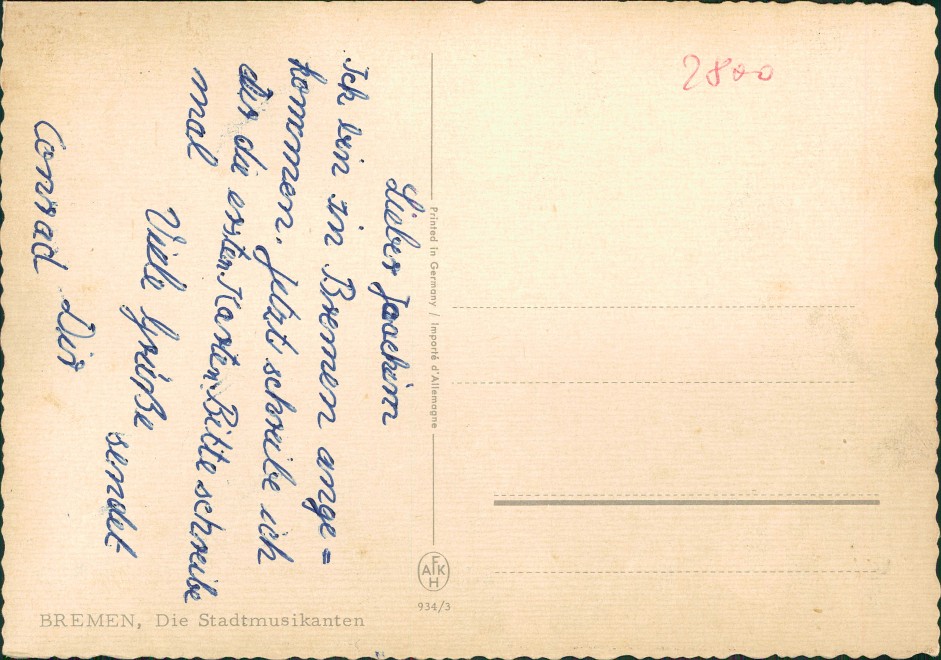 Lieber Joachim
Ich bin in Bremen ange=
kommen. Jetzt schreibe ich
dir die ersten Karten. Bitte schreibe
mal
Viele Grüße
sendet
Conrad Dir
2800
Printed in Germany / Importé d'Allemagne
F
AKH
934/3
BREMEN, Die Stadtmusikanten